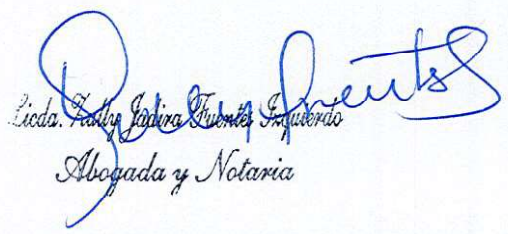 Licda. Kelly Jadira Fuentes Izquierdo
Abogada y Notaria